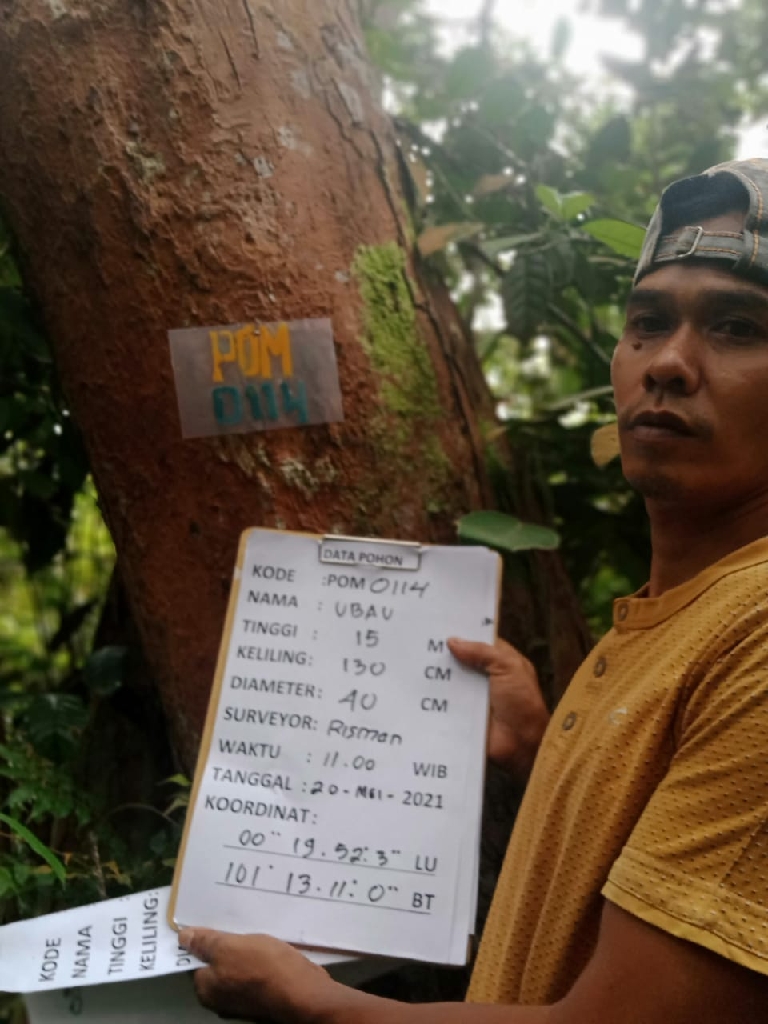 POM
0114
DATA POHON
KODE :POM 0114
NAMA : UBAU
TINGGI : 15 M
KELILING: 130 CM
DIAMETER: 40 CM
SURVEYOR: Risman
WAKTU : 11.00 WIB
TANGGAL : 20 - MEI - 2021
KOORDINAT:
00" 19.52.3" LU
101° 13.11.0" BT
KODE
NAMA
TINGGI
KELILING: